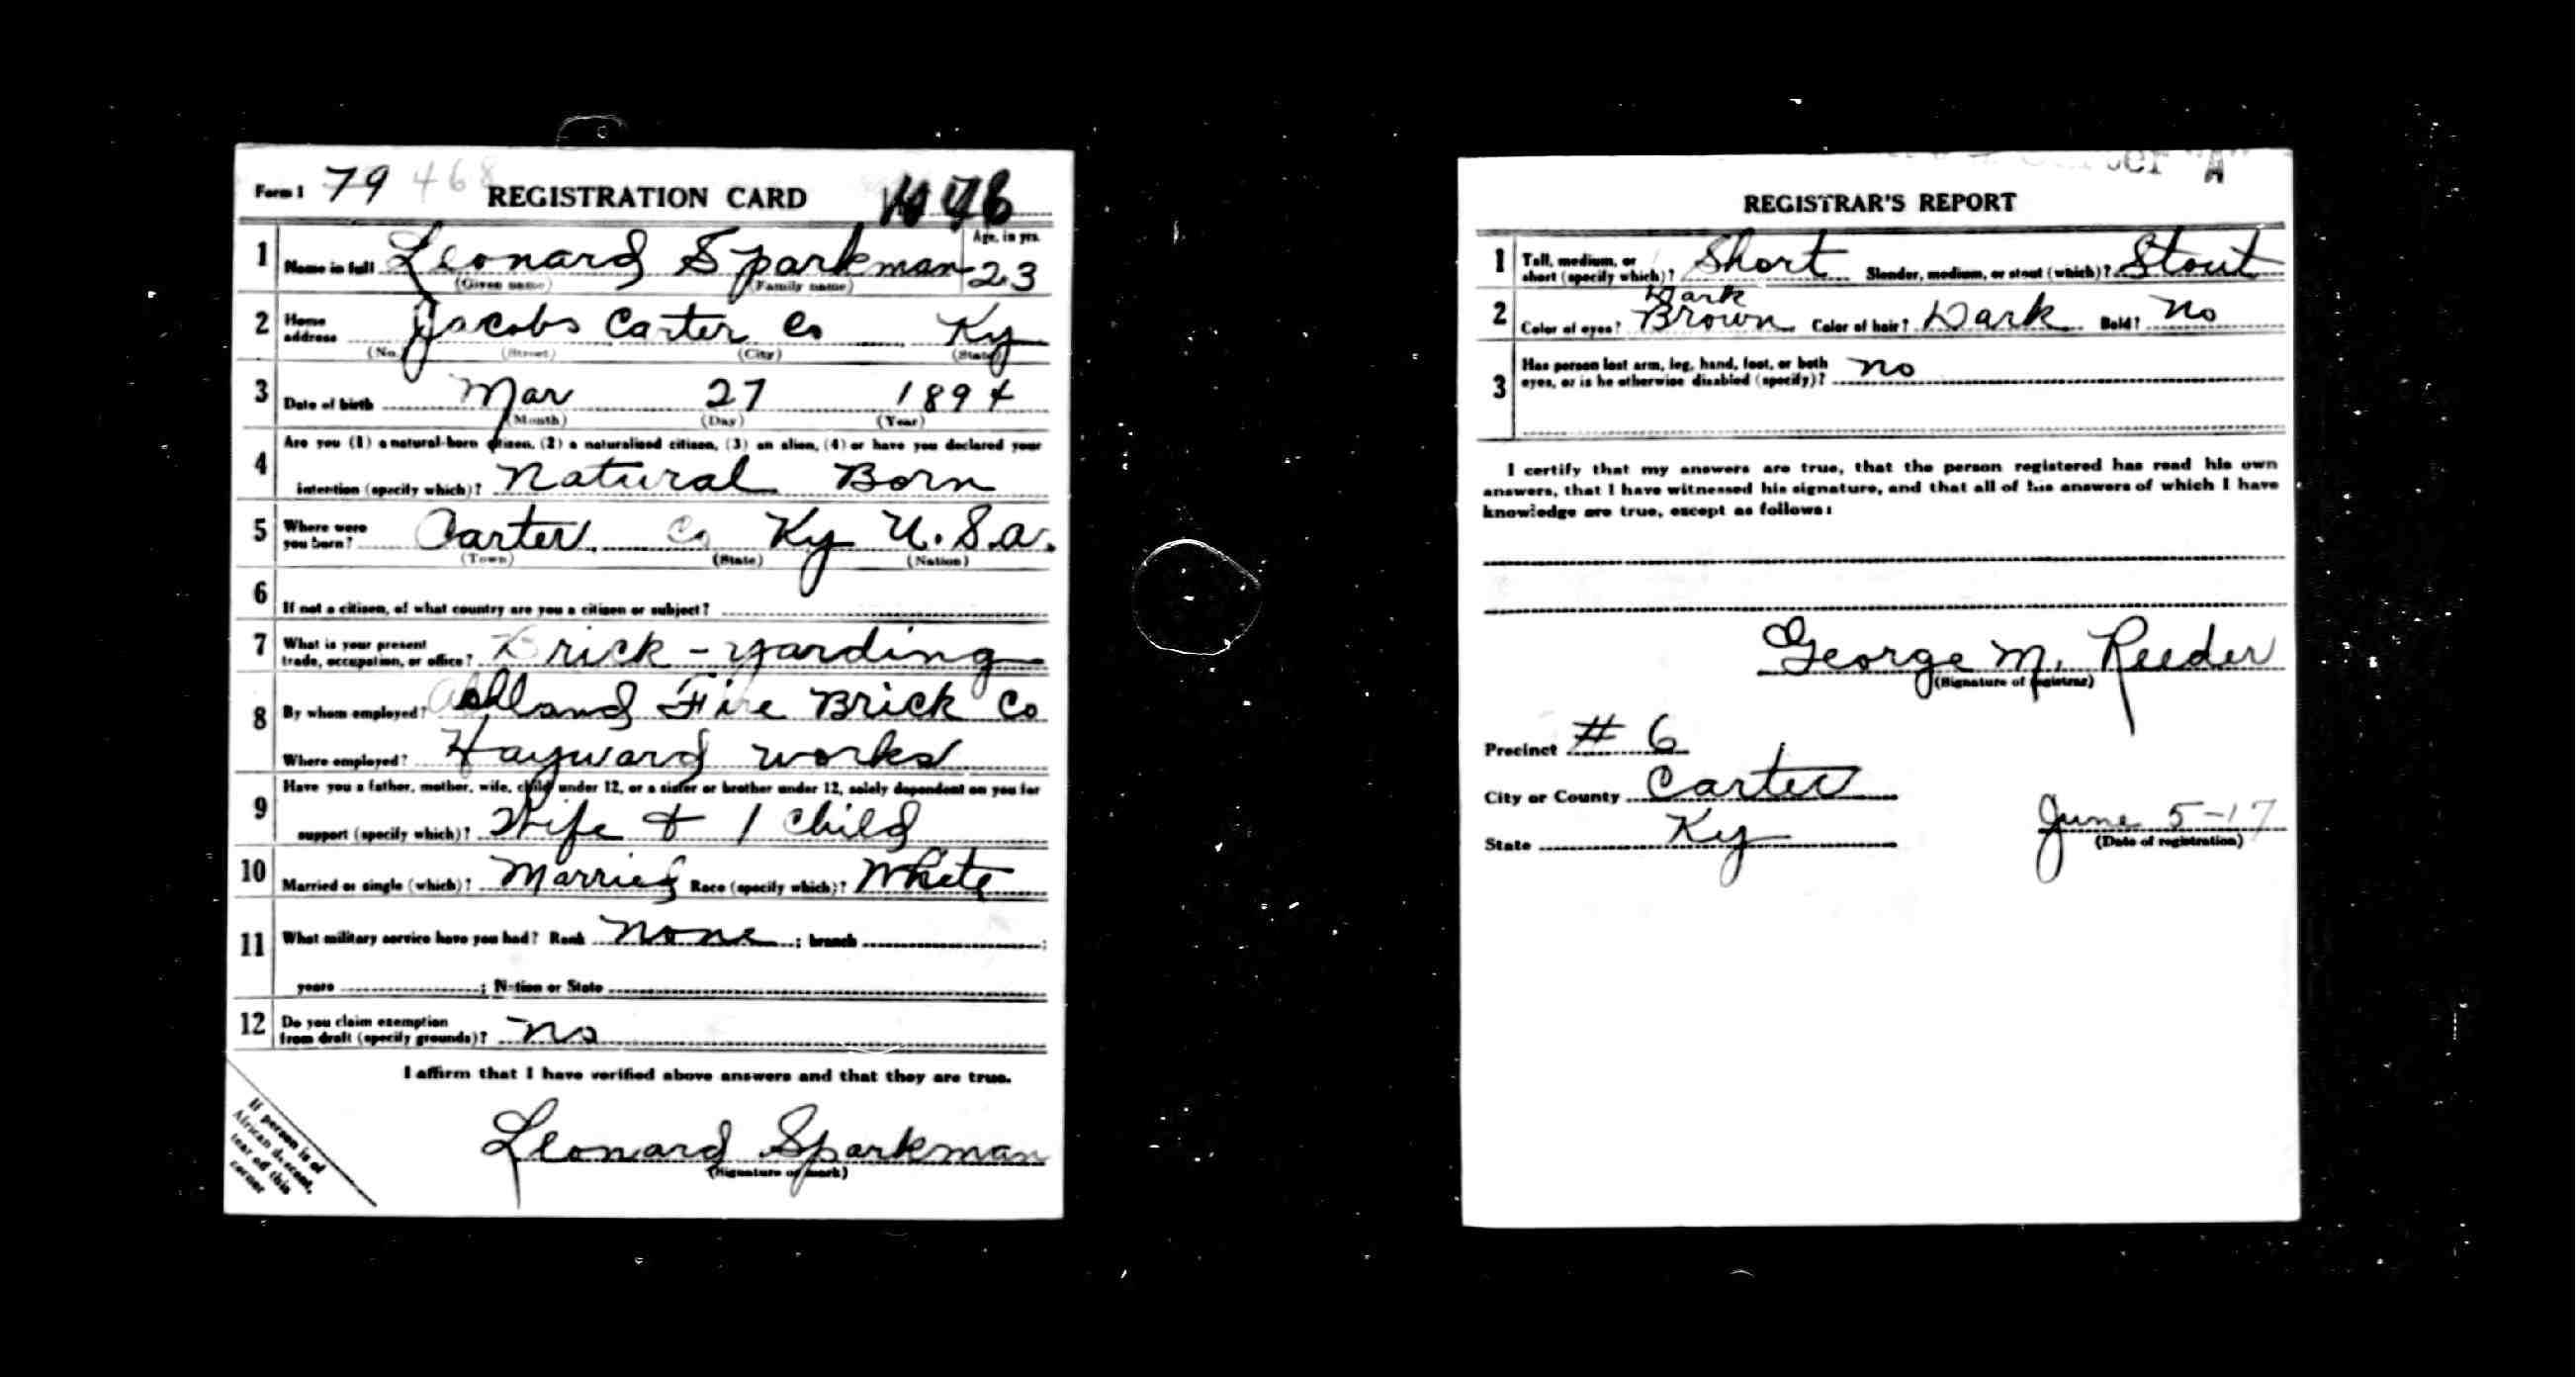 Form 1 79 468 REGISTRATION CARD
1 Name in full Leonard Sparkman Age, in yrs. 23
(Given name) (Family name)
2 Home address Jacobs Carter Co Ky
(No.) (Street) (City) (State)
3 Date of birth Mar 27 1894
(Month) (Day) (Year)
4 Are you (1) a natural-born citizen, (2) a naturalized citizen, (3) an alien, (4) or have you declared your
intention (specify which)? Natural Born
5 Where were you born? Carter Co Ky U.S.a.
(Town) (State) (Nation)
6 If not a citizen, of what country are you a citizen or subject?
7 What is your present trade, occupation, or office? Brick-yarding
8 By whom employed? Ashland Fire Brick Co
Where employed? Hayward works
9 Have you a father, mother, wife, child under 12, or a sister or brother under 12, solely dependent on you for
support (specify which)? Wife + 1 child
10 Married or single (which)? Married Race (specify which)? White
11 What military service have you had? Rank None ; branch ;
years ; Nation or State
12 Do you claim exemption from draft (specify grounds)? No
I affirm that I have verified above answers and that they are true.
Leonard Sparkman
(Signature or mark)
If person is of
African descent,
tear off this
corner
REGISTRAR'S REPORT
1 Tall, medium, or short (specify which)? Short Slender, medium, or stout (which)? Stout
2 Color of eyes? Dark Brown Color of hair? Dark Bald? No
3 Has person lost arm, leg, hand, foot, or both
eyes, or is he otherwise disabled (specify)? No
I certify that my answers are true, that the person registered has read his own
answers, that I have witnessed his signature, and that all of his answers of which I have
knowledge are true, except as follows:
George M. Reeder
(Signature of registrar)
Precinct # 6
City or County Carter
State Ky
June 5-17
(Date of registration)